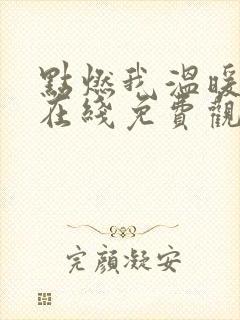 點燃我 溫暖
在綫免費觀
完顏凝安